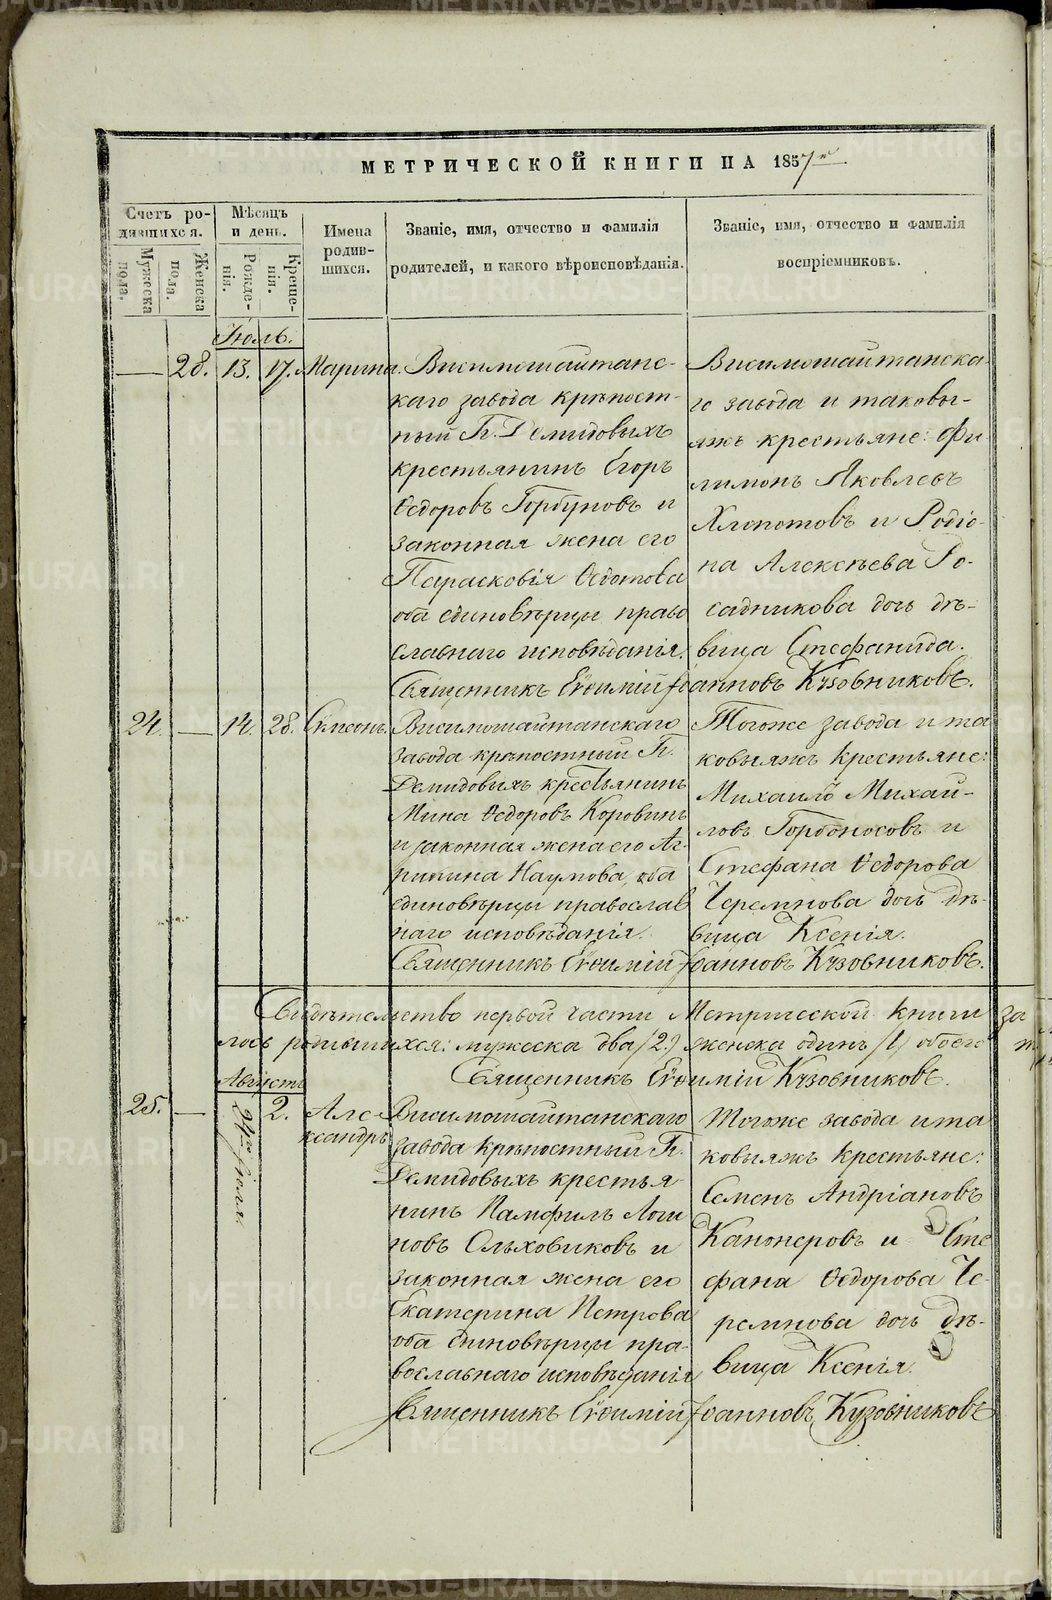 МЕТРИЧЕСКОЙ КНИГИ НА 1857й
Счетъ ро-
дившихся.
Мужеска
пола.
Женска
пола.
Мѣсяцъ
и день.
Рожде-
нія.
Креще-
нія.
Имена
родив-
шихся.
Званіе, имя, отчество и фамилія
родителей, и какого вѣроисповѣданія.
Званіе, имя, отчество и фамилія
воспріемниковъ.
Іюль.
28. 13. 17. Марина.
Висимошайтанс-
каго завода крѣпост-
ный Гг. Демидовыхъ
крестьянинъ Егоръ
Ѳедоровъ Горбуновъ и
законная жена его
Парасковія Ѳедотова
оба единовѣрцы право
славнаго исповѣданія.
Висимошайтанска-
го завода и таковы-
яжъ крестьяне: Фи-
лимонъ Яковлевъ
Хлопотовъ и Родіо-
на Алексѣева Ро-
садникова дочь дѣ-
вица Стефанида.
Священникъ Евѳимій Іоанновъ Кузовниковъ.
24. — 14. 28. Симеонъ.
Висимошайтанскаго
завода крѣпостный Гг.
Демидовыхъ крестьянинъ
Мина Ѳедоровъ Коровинъ
и законная жена его Аг-
рипина Наумова, оба
единовѣрцы православ
наго исповѣданія.
Тогоже завода и та
ковыяжъ крестьяне:
Михаилъ Михай-
ловъ Горбоносовъ и
Стефана Ѳедорова
Черемнова дочь дѣ-
вица Ксенія.
Священникъ Евѳимій Іоанновъ Кузовниковъ.
Свидѣтельство первой части Метрической книги за
лось родившихся: мужеска два /2./ женска одинъ /1/ обоего
Священникъ Евѳимій Кузовниковъ.
Августъ
25. — 24го Іюля. 2. Але-
ксандръ
Висимошайтанскаго
завода крѣпостный Гг.
Демидовыхъ крестья-
нинъ Памфилъ Логи
новъ Ольховиковъ и
законная жена его
Екатерина Петрова
оба единовѣрцы пра-
вославнаго исповѣданія
Тогоже завода и та
ковыяжъ крестьяне:
Семенъ Андріановъ
Канонеровъ и Сте
фана Ѳедорова Че-
ремнова дочь дѣ-
вица Ксенія.
Священникъ Евѳимій Іоанновъ Кузовниковъ
METRIKI.GASO-URAL.RU